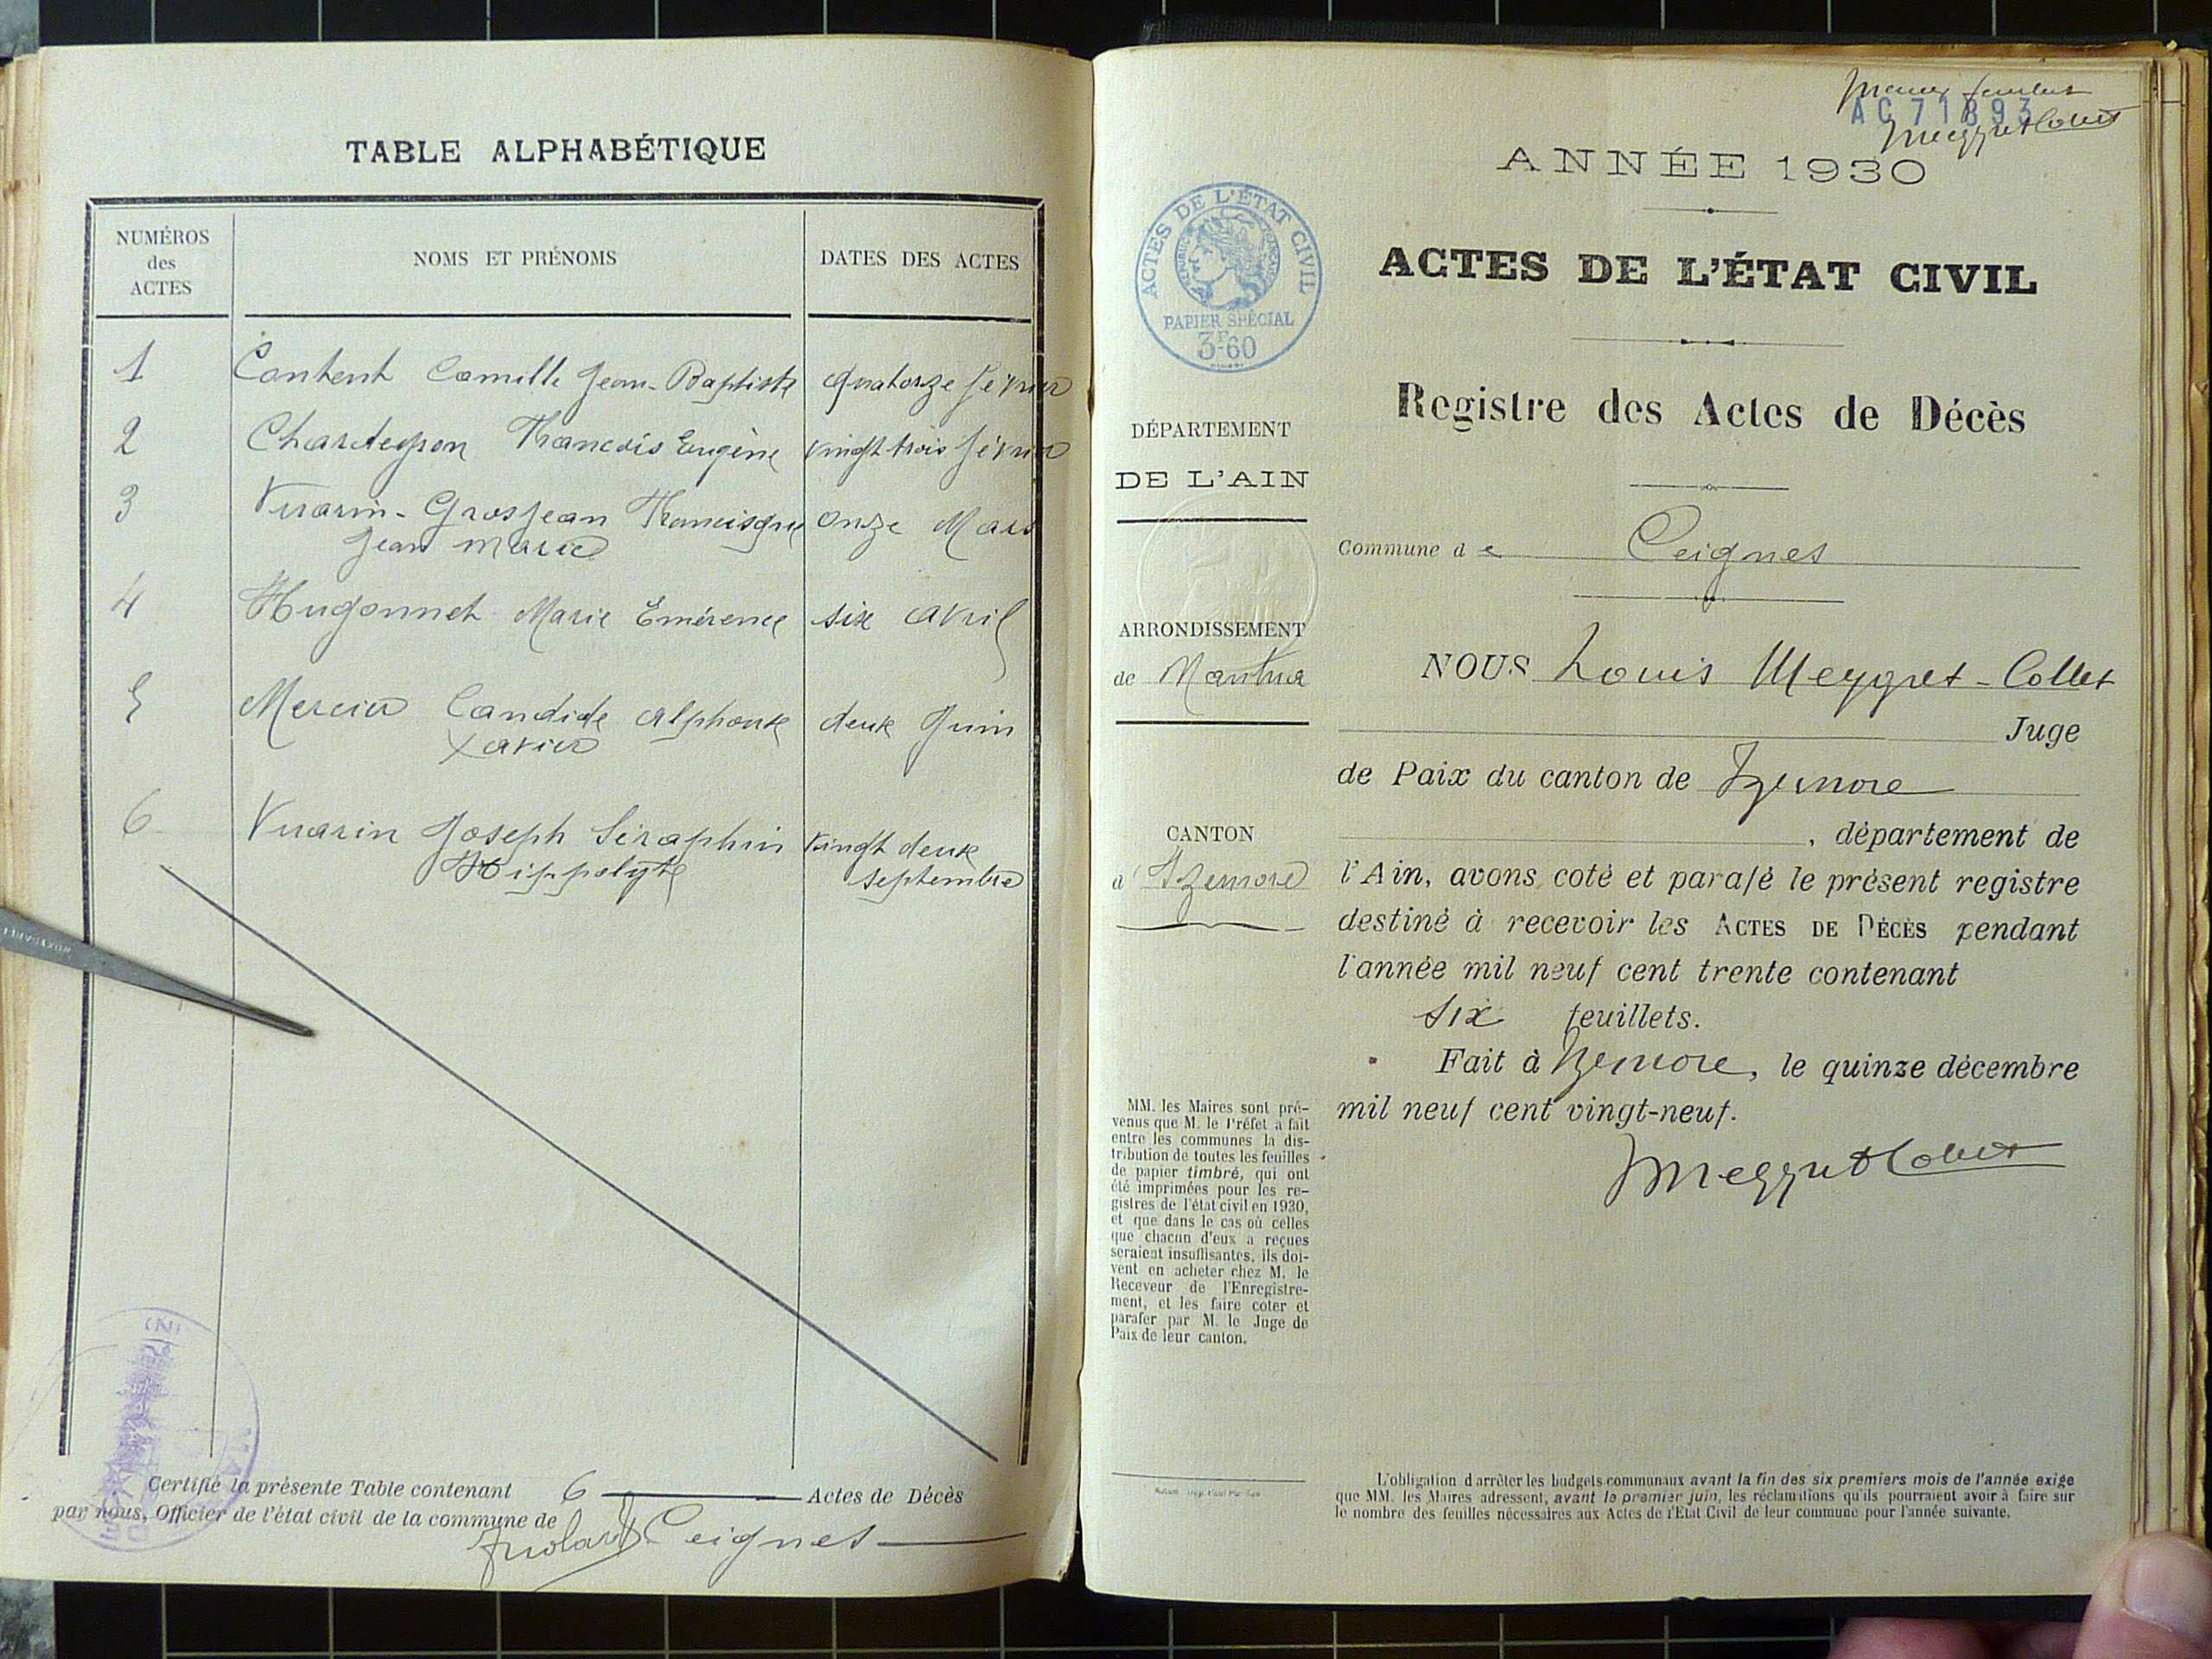 TABLE ALPHABÉTIQUE
NUMÉROS des ACTES
NOMS ET PRÉNOMS
DATES DES ACTES
1 Content Camille Jean-Baptiste quatorze février
2 François Eugène vingt trois février
3 Vuarin-Grosjean Francisque onze Mars
Jean Marie
4 Hugonnet Marie Emérence six avril
5 Mercier Candide Alphonse deux Juin
Xavier
6 Vuarin Joseph Séraphin vingt deux
Hippolyte septembre
Certifié la présente Table contenant 6 Actes de Décès
par nous, Officier de l'état civil de la commune de
Ceignes
AC 71893
Meygret Collet
ANNÉE 1930
ACTES DE L'ÉTAT CIVIL
PAPIER SPÉCIAL
3F60
ACTES DE L'ÉTAT CIVIL
Registre des Actes de Décès
DÉPARTEMENT
DE L'AIN
Commune de Ceignes
ARRONDISSEMENT
de Nantua
NOUS Louis Meygret-Collet
Juge
de Paix du canton de Izernore
, département de
CANTON
d'Izernore
l'Ain, avons coté et parafé le présent registre
destiné à recevoir les ACTES DE DÉCÈS pendant
l'année mil neuf cent trente contenant
six feuillets.
Fait à Izernore, le quinze décembre
mil neuf cent vingt-neuf.
Meygret Collet
MM. les Maires sont pré-
venus que M. le Préfet a fait
entre les communes la dis-
tribution de toutes les feuilles
de papier timbré, qui ont
été imprimées pour les re-
gistres de l'état civil en 1930,
et que dans le cas où celles
que chacun d'eux a reçues
seraient insuffisantes, ils doi-
vent en acheter chez M. le
Receveur de l'Enregistre-
ment, et les faire coter et
parafer par M. le Juge de
Paix de leur canton.
L'obligation d'arrêter les budgets communaux avant la fin des six premiers mois de l'année exige
que MM. les Maires adressent, avant le premier juin, les réclamations qu'ils pourraient avoir à faire sur
le nombre des feuilles nécessaires aux Actes de l'État Civil de leur commune pour l'année suivante.